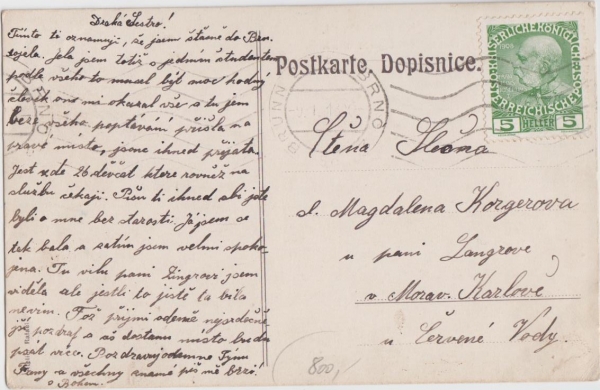 Drahá Sestro!
Tímto ti oznamuji, že jsem šťasně do Brn
přijela. Jela jsem totiž s jedním studentem
podle všeho to musel být moc hodný
člověk on mi okazal vše a tu jem
beze všeho poptávání přišla na
pravé místo, jsme ihned přijata.
Jest zde 26 děvčat ktere rovněž na
službu čekaji. Píšu ti ihned abi jste
byli o mne bez starosti. Já jsem se
tek bala a satím jsem velmi spoko-
jena. Tu vilu pani Zingrovi jsem
viděla ale jestli to jiště ta bila
nevim. Tož přijmi odemě nysrdečně
jší pozdraf a až dostanu misto budu
psát více. Pozdravuj odemne
Fany a všechny znamé piš mě brzi!
s Bohem.
Postkarte, Dopisnice.
BRÜNN BRNO
KAISERLICHE KÖNIGLICHE
ÖSTERREICHISCHE
1908
5 HELLER 5
Ctěna Slečna
sl. Magdalena Korgerova
u pani Langrove
v Morav. Karlově
u Červené Vody.
800,